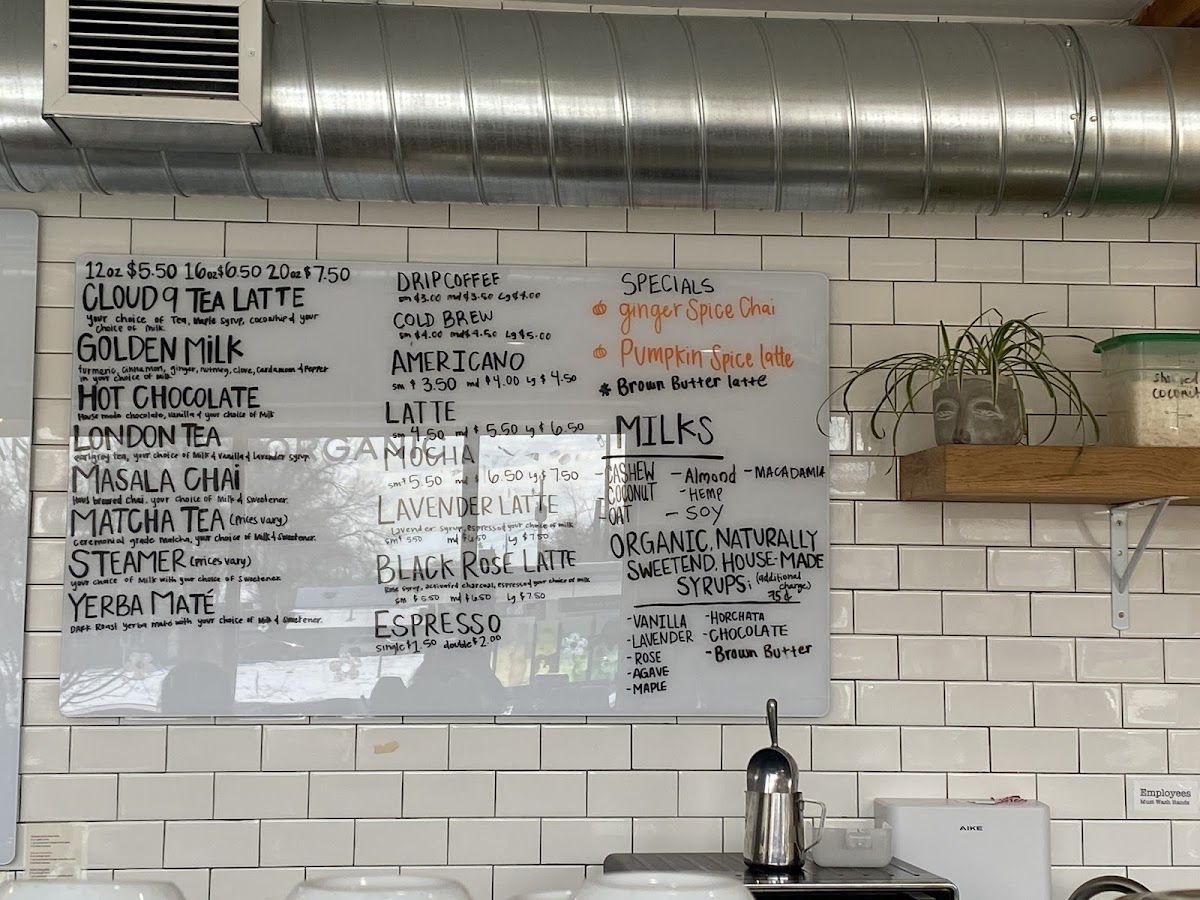 12oz $5.50 16oz $6.50 20oz $7.50
CLOUD 9 TEA LATTE
your choice of Tea, Maple syrup, coconut whip & your
choice of milk.
GOLDEN MILK
turmeric, cinnamon, ginger, nutmeg, clove, cardamom & pepper
in your choice of milk.
HOT CHOCOLATE
House made chocolate, vanilla & your choice of Milk
LONDON TEA
earl grey tea, your choice of Milk & vanilla & lavender syrup
MASALA CHAI
House brewed chai, your choice of Milk & Sweetener.
MATCHA TEA (prices vary)
ceremonial grade matcha, your choice of Milk & Sweetener.
STEAMER (prices vary)
your choice of Milk with your choice of Sweetener.
YERBA MATÉ
Dark Roast yerba mate with your choice of Milk & Sweetener.
DRIP COFFEE
sm $3.00 md $3.50 Lg $4.00
COLD BREW
sm $4.00 md $4.50 Lg $5.00
AMERICANO
sm $3.50 md $4.00 Lg $4.50
LATTE
sm 4.50 md $5.50 Lg $6.50
MOCHA
sm $5.50 md 6.50 Lg $7.50
LAVENDER LATTE
Lavender syrup, espresso & your choice of milk
sm $5.50 md $6.50 Lg $7.50
BLACK ROSE LATTE
Rose syrup, activated charcoal, espresso & your choice of milk
sm $5.50 md $6.50 Lg $7.50
ESPRESSO
single $1.50 double $2.00
SPECIALS
ginger Spice Chai
Pumpkin Spice latte
* Brown Butter latte
MILKS
- CASHEW - Almond - MACADAMIA
COCONUT - HEMP
OAT - SOY
ORGANIC, NATURALLY
SWEETEND, HOUSE-MADE
SYRUPS: (additional
charge) 75¢
- VANILLA - HORCHATA
- LAVENDER - CHOCOLATE
- ROSE - Brown Butter
- AGAVE
- MAPLE
ORGANIC
coconut
AIKE
Employees
Must Wash Hands